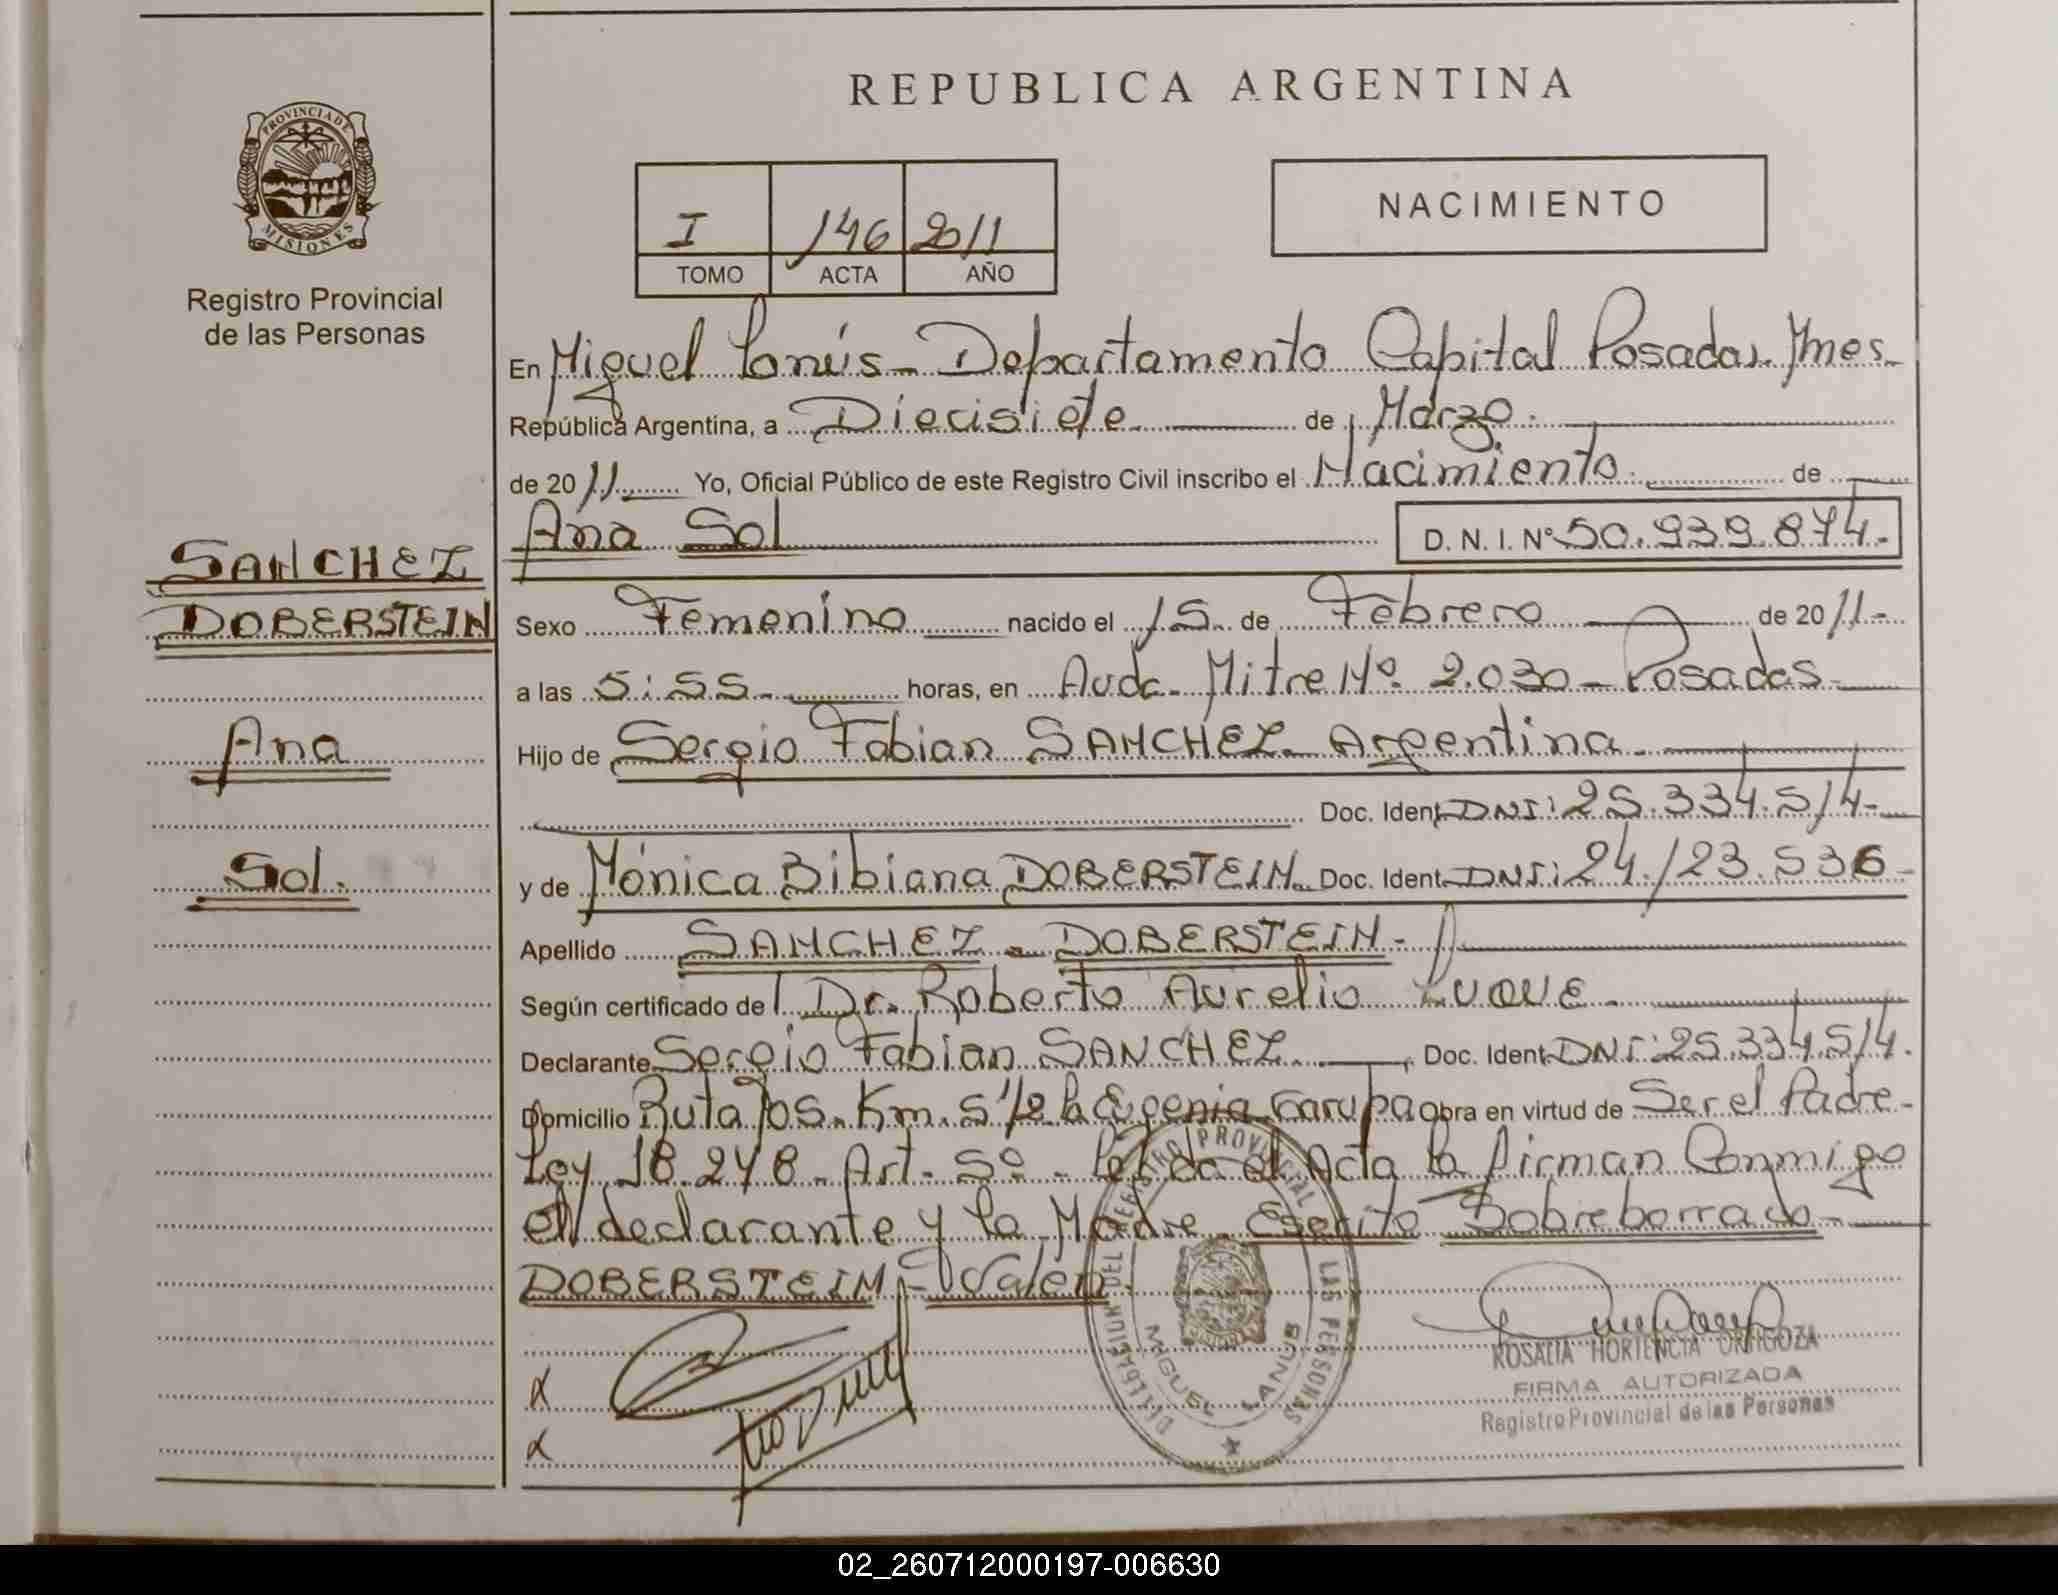 REPUBLICA ARGENTINA
PROVINCIA DE MISIONES
Registro Provincial
de las Personas
I 146 2011
TOMO ACTA AÑO
NACIMIENTO
En Miguel Lanús - Departamento Capital Posadas. Mnes-
República Argentina, a Diecisiete de Marzo.
de 2011 Yo, Oficial Público de este Registro Civil inscribo el Nacimiento. de
Ana Sol D. N. I. Nº 50.939.874.
SANCHEZ
DOBERSTEIN
Ana
Sol.
Sexo Femenino nacido el 15. de Febrero de 2011-
a las 5:55 horas, en Avda. Mitre Nº 2.030 - Posadas
Hijo de Sergio Fabian SANCHEZ - Argentina -
Doc. Ident. DNI: 25.334.514-
y de Mónica Bibiana DOBERSTEIN. Doc. Ident. DNI: 24.123.536
Apellido SANCHEZ - DOBERSTEIN -
Según certificado del Dr. Roberto Aurelio LUQUE.
Declarante Sergio Fabian SANCHEZ Doc. Ident. DNI: 25.334.514.
Domicilio Ruta 105. Km. 5 1/2 la Eugenia Garupa obra en virtud de Ser el Padre-
Ley 18.248 - Art. 5º - Leída el Acta la firman Conmigo
el declarante y la Madre Escrito Sobreborrado
DOBERSTEIN - Valen.
x
x
DELEGACION DEL REGISTRO PROVINCIAL
LAS PERSONAS
MIGUEL LANUS
ROSALIA HORTENCIA ORTIGOZA
FIRMA AUTORIZADA
Registro Provincial de las Personas
02_260712000197-006630